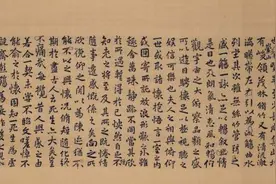 有崇領茂林脩竹又有清流激
湍暎帶左右引以為流觴曲水
列坐其次雖無絲竹管弦之
盛一觴一詠亦足以暢敘幽情
是日也天朗氣清惠風和暢仰
觀宇宙之大俯察品類之盛
所以遊目騁懷足以極視聽之
娛信可樂也夫人之相與俯仰
一世或取諸懷抱悟言一室之內
或因寄所託放浪形骸之外雖
趣舍萬殊靜躁不同當其欣
於所遇蹔得於己怏然自足不
知老之將至及其所之既惓情
隨事遷感慨係之矣向之所
欣俛仰之間以為陳迹猶不
能不以之興懷況脩短隨化終
期於盡古人云死生亦大矣豈
不痛哉每攬昔人興感之由
若合一契未嘗不臨文嗟悼不
能喻之於懷固知一死生為虛